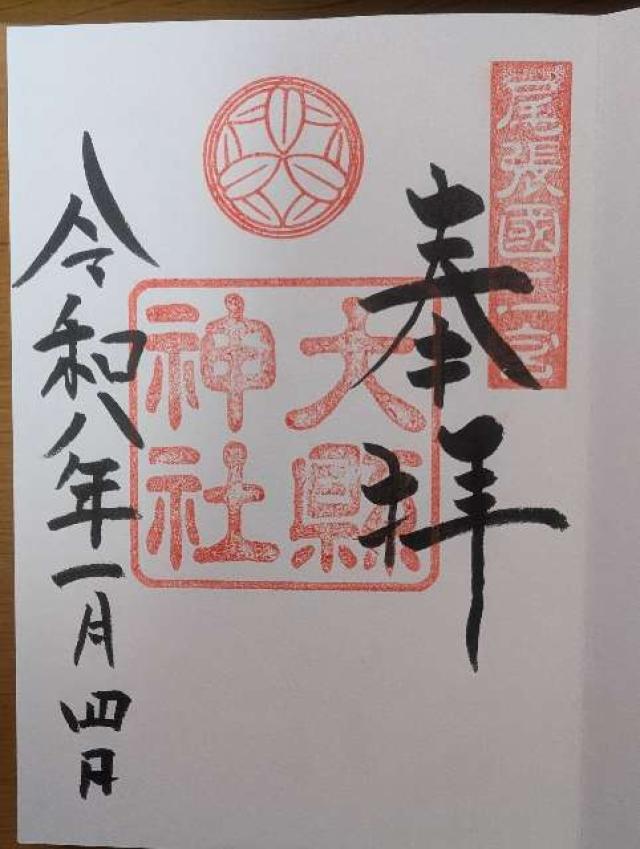 尾張國二宮
奉拝
大縣
神社
令和八年一月四日